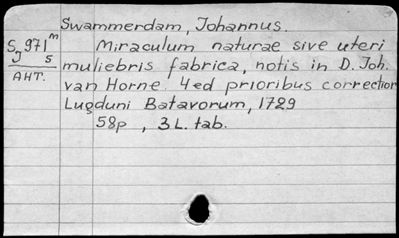 Swammerdam, Johannus.
S 971 m
J 5
AHT.
Miraculum naturae sive uteri
muliebris fabrica, notis in D. Joh.
van Horne. 4 ed prioribus correctior
Lugduni Batavorum, 1729
58p , 3 L. tab.